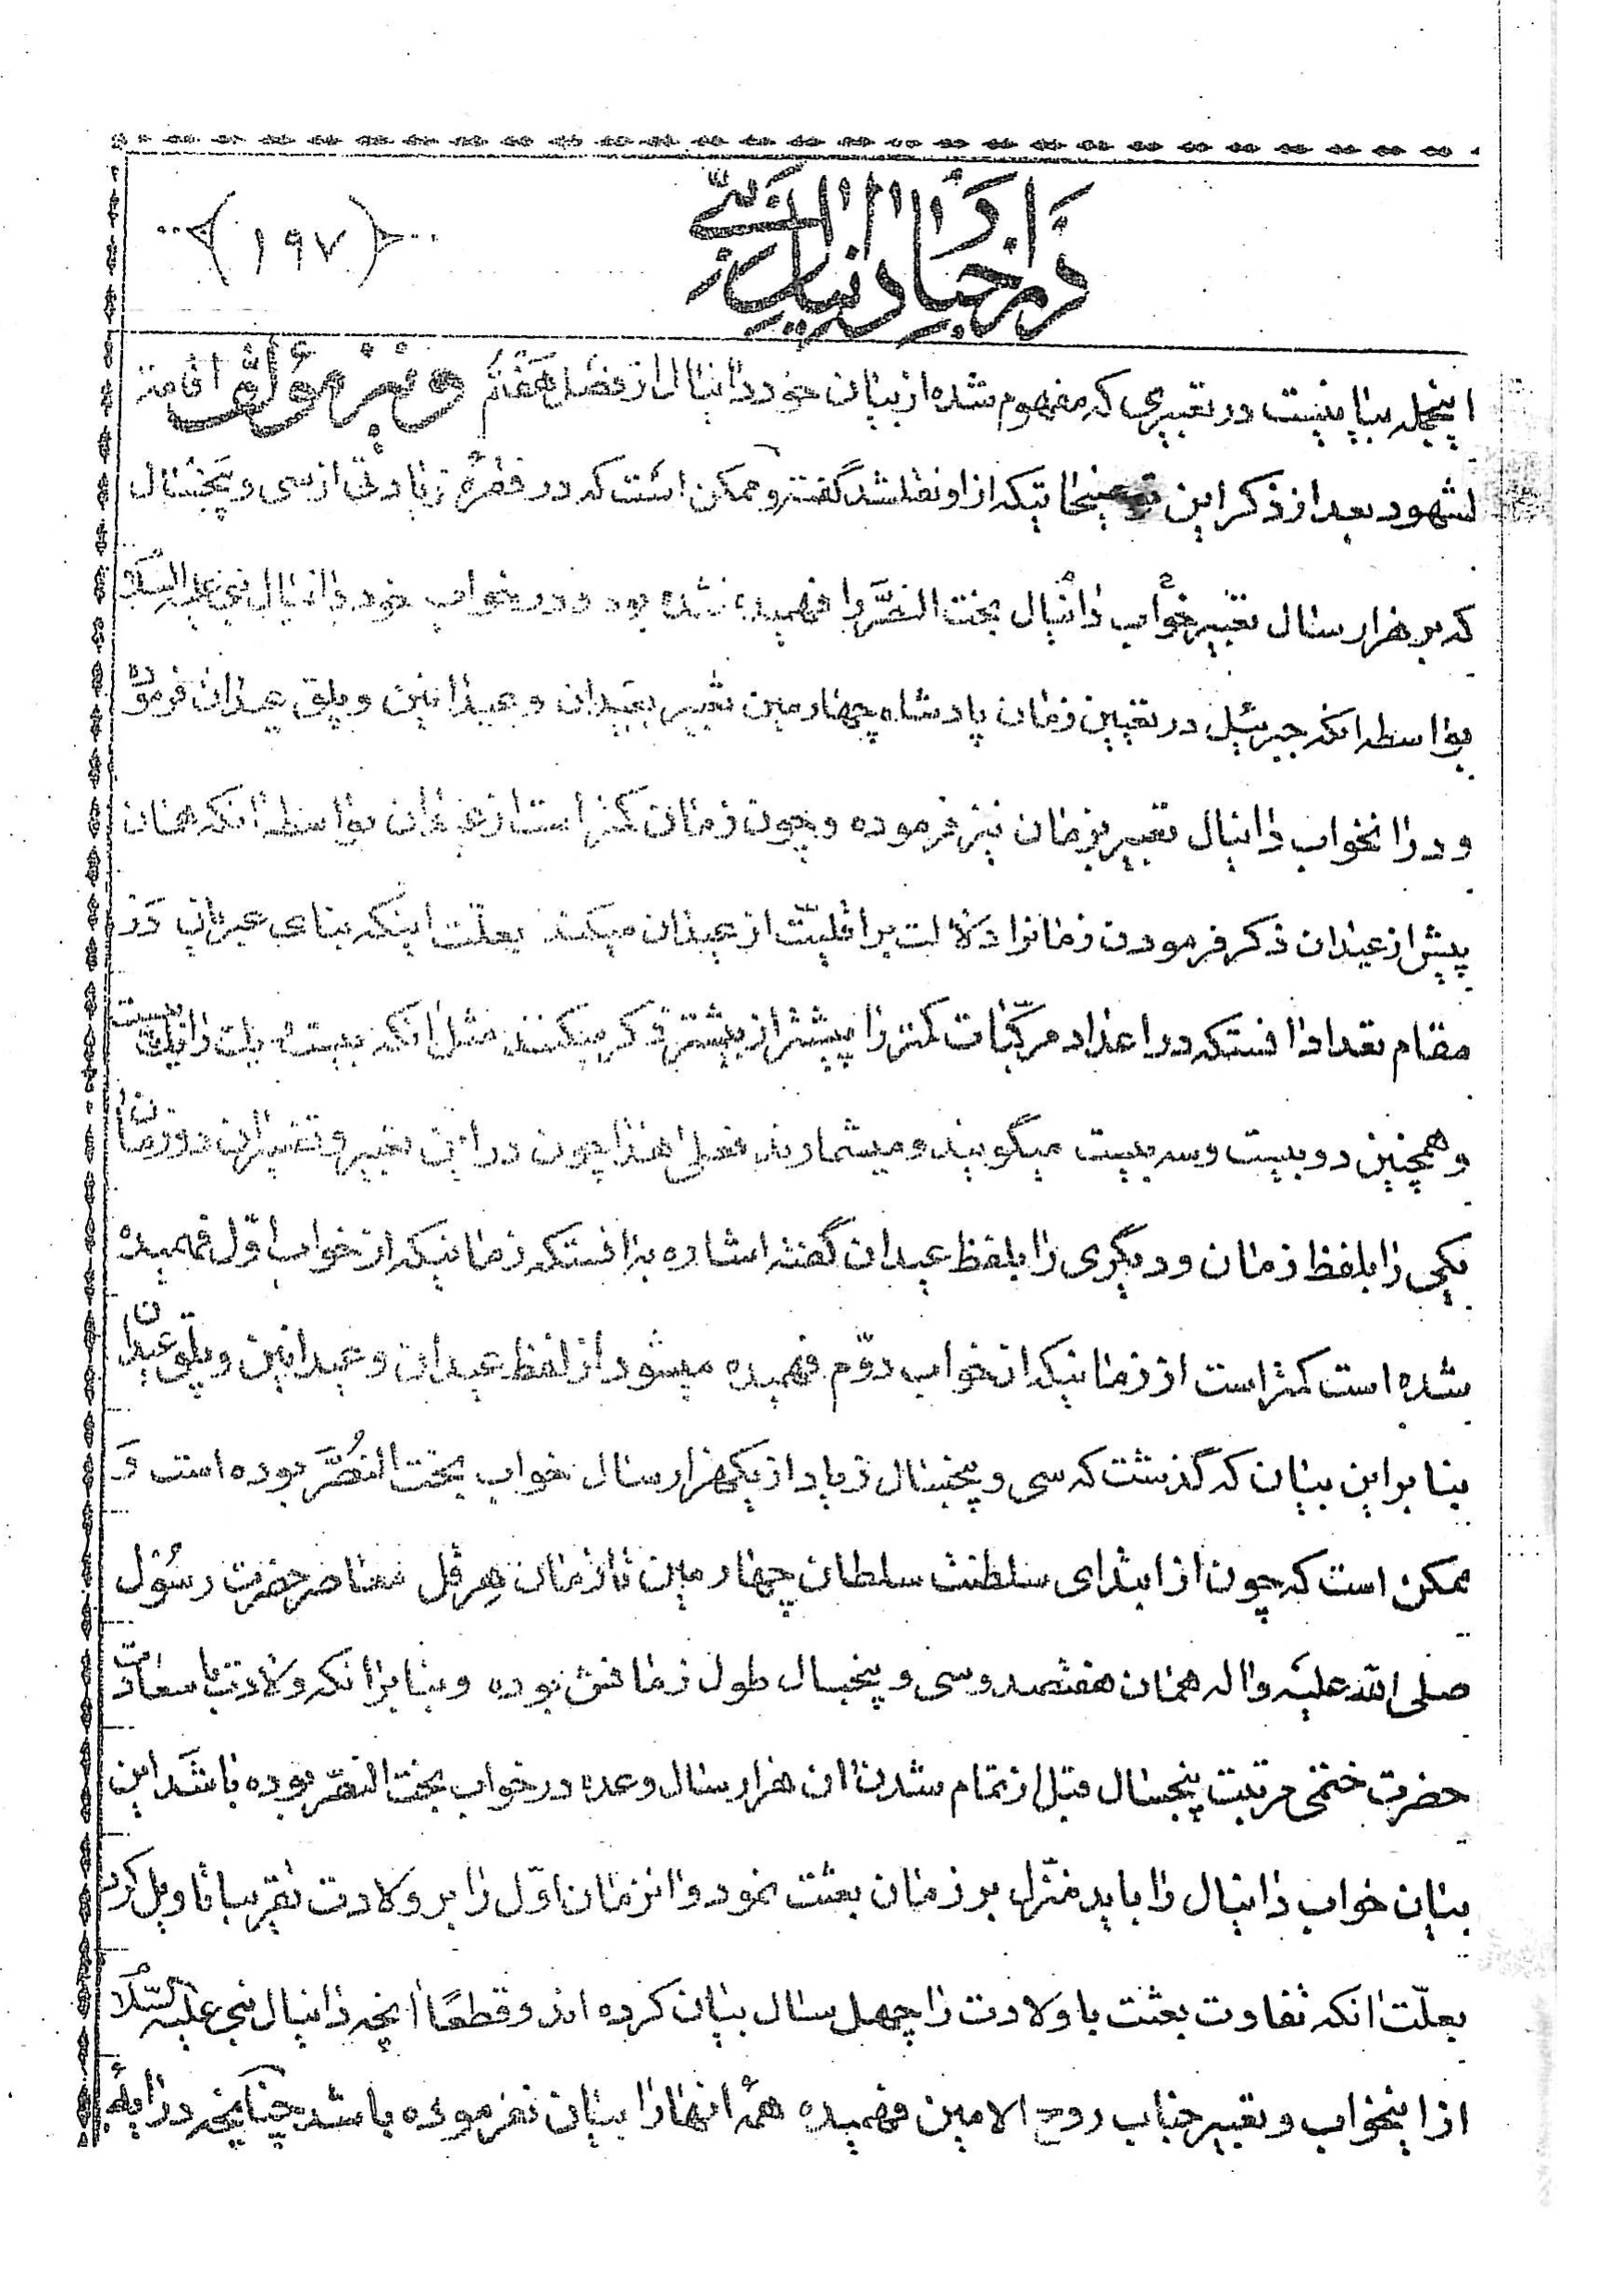 در اخبار دانیال النبی
(۱۹۷)
اینجمله بیاناتیست در تعبیری که مفهوم شده از بیان خود دانیال از فصل هفتم و نیز مؤلف اقامة
لشهود بعد از ذکر این توضیحاتیکه از او نقل شد گفته و ممکن است که در فقرهٔ زیادتی از سی و پنجسال
که بر هزار سال تعبیر خواب دانیال بخت النصر را فهمیده شده بود و در خواب خود دانیال نبی علیه السلام
بواسطه انکه جبرئیل در تعیین زمان پادشاه چهارمین تعبیر بعیدان و عیدانین و پلق عیدان فرموده
و در انخواب دانیال تعبیر بزمان نیز فرموده و چون زمان کمتر است از عیدان بواسطه انکه همان
پیش از عیدان ذکر فرمودن زمانرا دلالت بر اقلیّت از عیدان میکند بعلّت اینکه بنای عبرانی در
مقام تعداد انستکه در اعداد مرکّبات کمتر را پیشتر از بیشتر ذکر میکنند مثل انکه بیست و یک را یک بیست
و همچنین دو بیست و سه بیست میگویند و میشمارند فعلی هذا چون در این تعبیر و تفسیر این دو زمان
یکی را بلفظ زمان و دیگری را بلفظ عیدان گفته اشاره بر انستکه زمانیکه از خواب اوّل فهمیده
شده است کمتر است از زمانیکه از خواب دوّم فهمیده میشود از لفظ عیدان و عیدانین و پلق عیدان
بنا بر این بیان که گذشت که سی و پنجسال زیاد از یکهزار سال خواب بخت النصر بوده است و
ممکن است که چون از ابتدای سلطنت سلطان چهارمین تا زمان هرقل معاصر حضرت رسول
صلی الله علیه واله همان هفتصد و سی و پنجسال طول زمانش بوده و بنا بر انکه ولادت با سعادت
حضرت ختمی مرتبت پنجسال قبل از تمام شدن ان هزار سال وعده در خواب بخت النصر بوده باشد این
بیان خواب دانیال را باید منزل بر زمان بعثت نمود و انزمان اوّل را بر ولادت تقریبا تاویل کرد
بعلّت انکه تفاوت بعثت با ولادت را چهل سال بیان کرده اند و قطعاً انچه دانیال نبی علیه السلام
از اینخواب و تعبیر جناب روح الامین فهمیده همهٔ انها را بیان نفرموده باشد چنانچه در ایهٔ